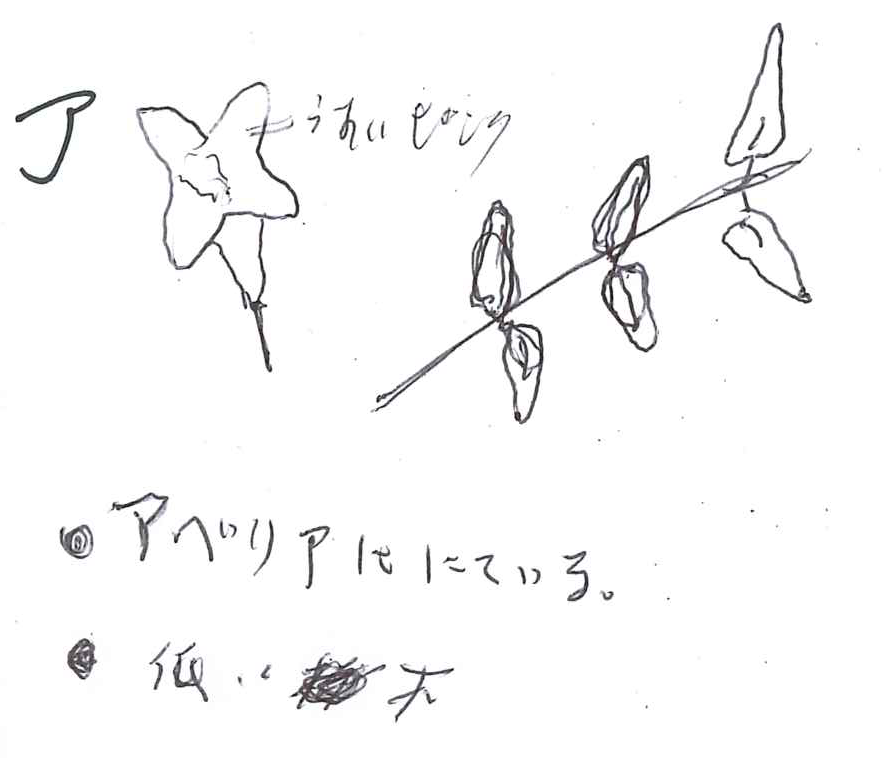 ア
うすいピンク
アベリアににている。
低い木